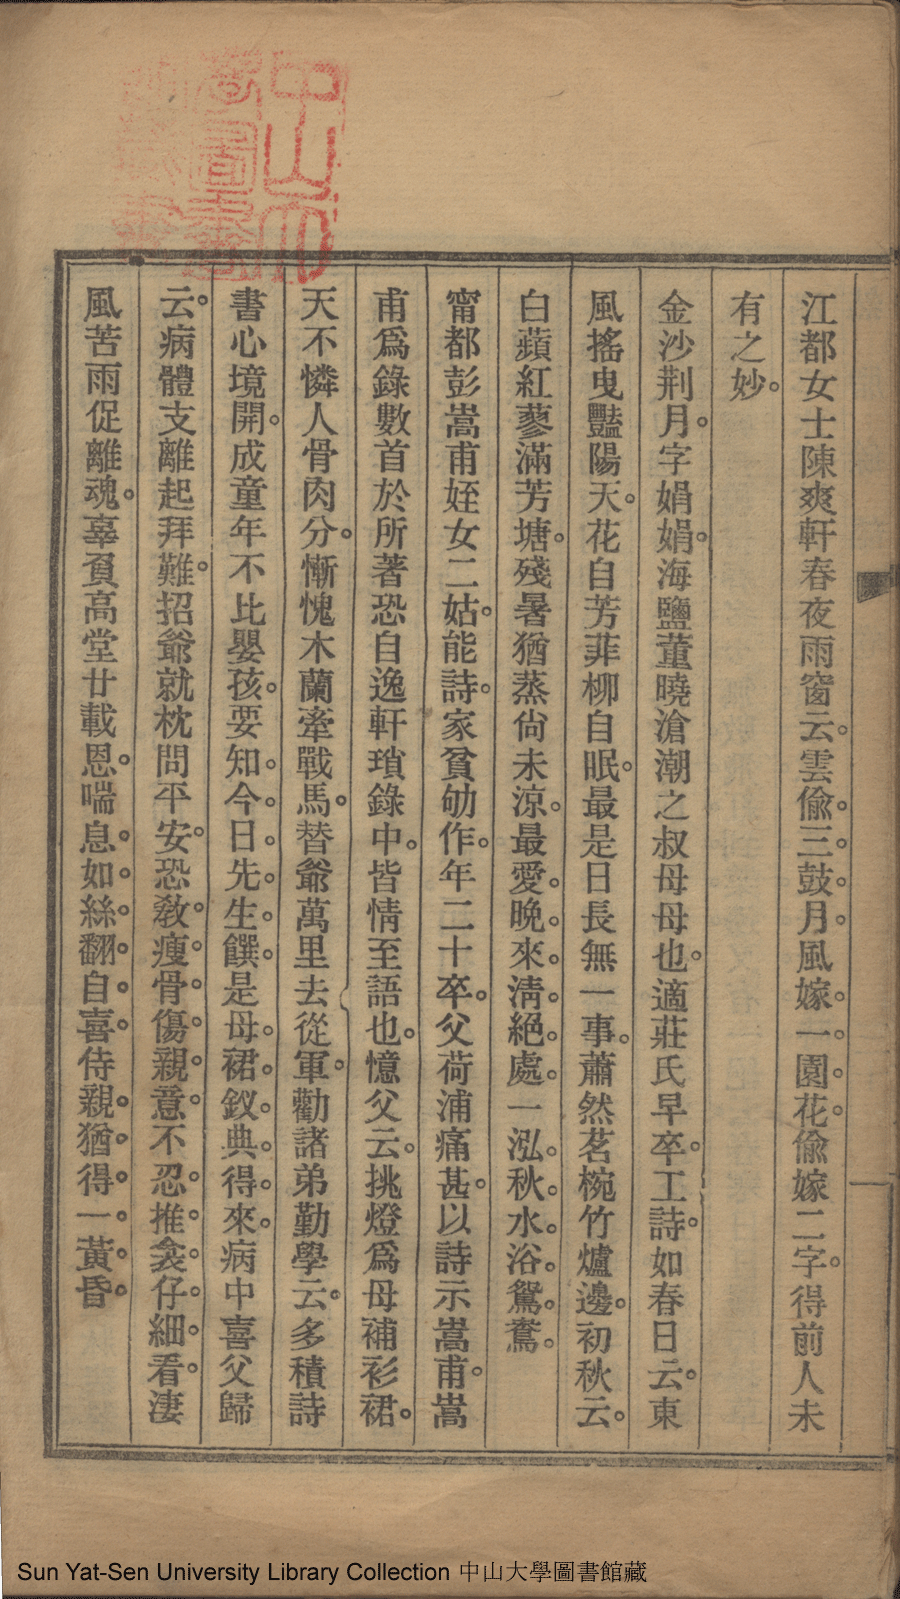 江都女士陳爽軒春夜雨窗云。雲偷三鼓月。風嫁一園花。偷嫁二字。得前人未
有之妙。
金沙荆月。字娟娟。海鹽董曉滄潮之叔母母也。適莊氏早卒。工詩。如春日云。東
風搖曳豔陽天。花自芳菲柳自眠。最是日長無一事。蕭然茗椀竹爐邊。初秋云。
白蘋紅蓼滿芳塘。殘暑猶蒸尙未涼。最愛晚來淸絕處。一泓秋水浴鴛鴦。
甯都彭嵩甫姪女二姑。能詩。家貧劬作。年二十卒。父荷浦痛甚。以詩示嵩甫。嵩
甫爲錄數首於所著恐自逸軒瑣錄中。皆情至語也。憶父云。挑燈爲母補衫裙。
天不憐人骨肉分。慚愧木蘭牽戰馬。替爺萬里去從軍。勸諸弟勤學云。多積詩
書心境開。成童年不比嬰孩。要知今日先生饌。是母裙釵典得來。病中喜父歸
云。病體支離起拜難。招爺就枕問平安。恐敎瘦骨傷親意。不忍推衾仔細看。淒
風苦雨促離魂。辜負高堂廿載恩。喘息如絲翻自喜。侍親猶得一黃昏。
Sun Yat-Sen University Library Collection 中山大學圖書館藏